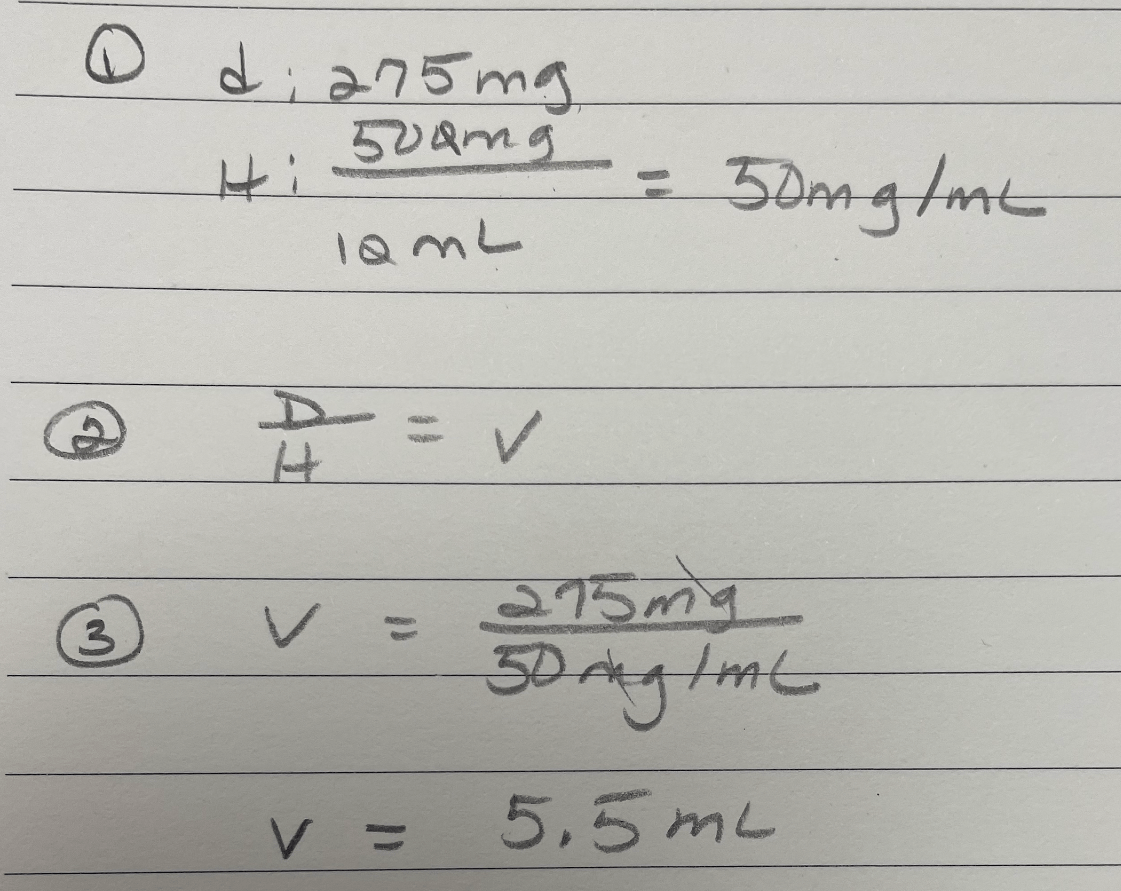 ① d: 275mg
H: 500mg / 10 mL = 50mg/mL
② D/H = V
③ V = 275mg / 50mg/mL
V = 5.5 mL